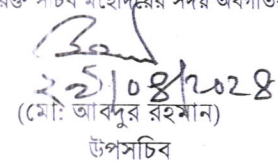 সচিব মহোদয়ের সদয় অবগতি
২৯/০৪/২০২৪
(মো: আবদুর রহমান)
উপসচিব